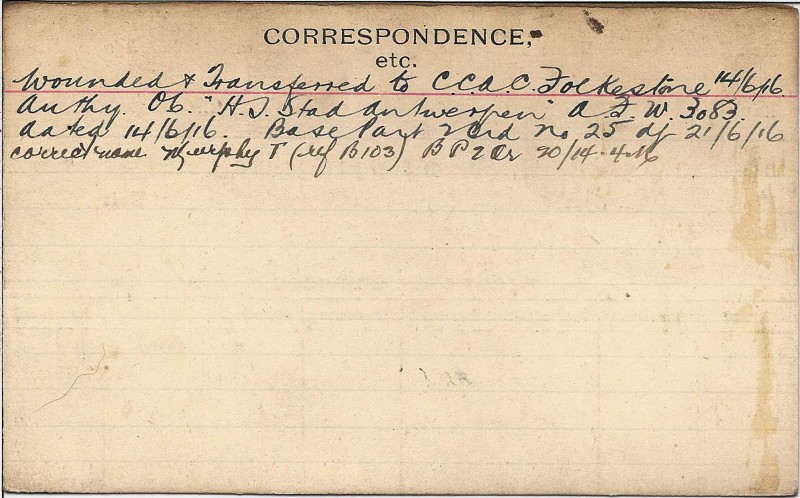 CORRESPONDENCE,
etc.
Wounded & Transferred to C.C.A.C. Folkestone 14/6/16.
Authy. Ob. "H.S. Stad Antwerpen" A.F.W. 3083.
dated 14/6/16. Base Part 2 Ord No 25 df 21/6/16
correct name Murphy T (ref B103) B P 2 Or 20/14-4-16